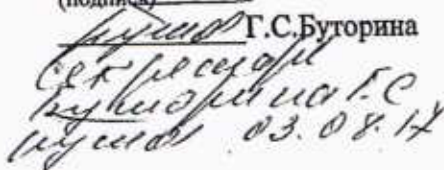 (подпись)
Г.С.Буторина
секретарь
Буторина Г.С
03.08.17